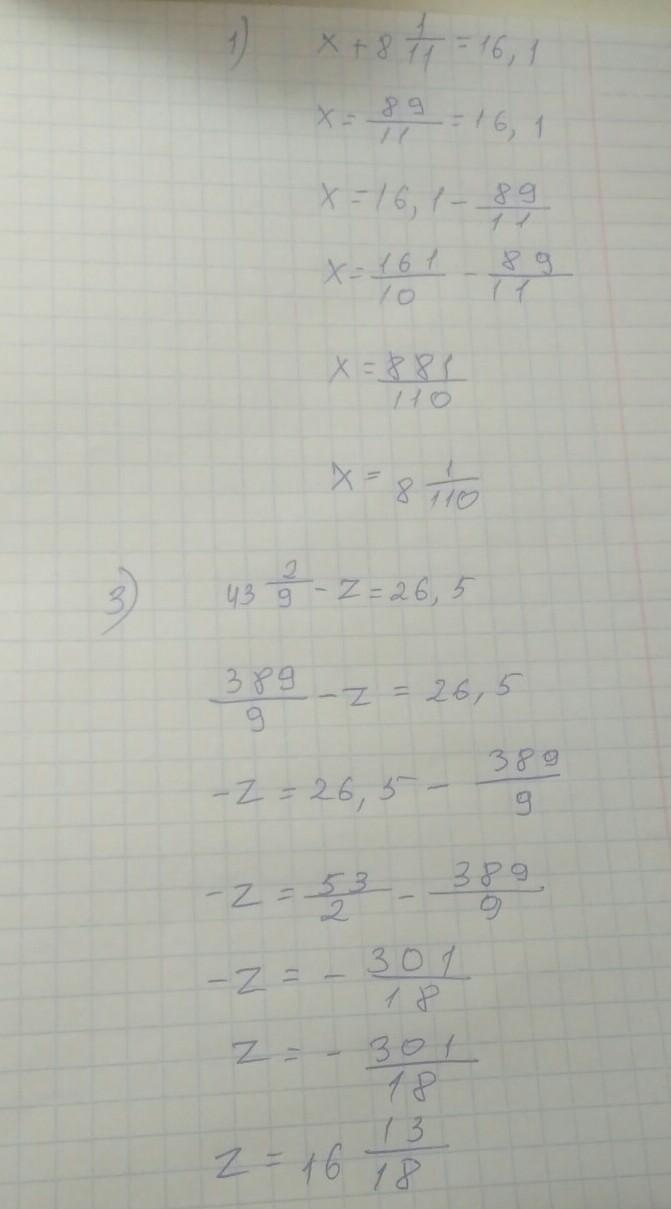 1) x + 8 1/11 = 16,1
x = 89/11 = 16,1
x = 16,1 - 89/11
x = 161/10 - 89/11
x = 881/110
x = 8 1/110
3) 43 2/9 - z = 26,5
389/9 - z = 26,5
-z = 26,5 - 389/9
-z = 53/2 - 389/9
-z = - 301/18
z = - 301/18
z = 16 13/18